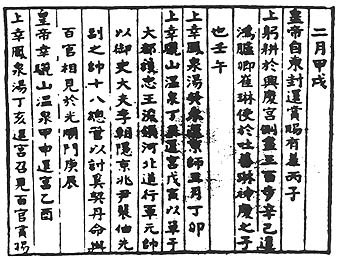 二月甲戌
皇帝自東封還賞賜有差丙子
上躬耕於興慶宮側盡三百步辛己還
鴻臚卿崔琳使於吐蕃琳神慶之子
也壬午
上幸鳳泉湯還京師月丁卯
上幸驪山温泉丁還宮戊寅以單于
大都護忠王浚領河北道行軍元帥
以御史大夫李朝隱京兆尹裴伯先
副之帥十八總管以討奚契丹命與
百官相見於光順門庚辰
皇帝幸驪山温泉甲申還宮乙酉
上幸鳳泉湯丁亥還宮召見百官賞賜